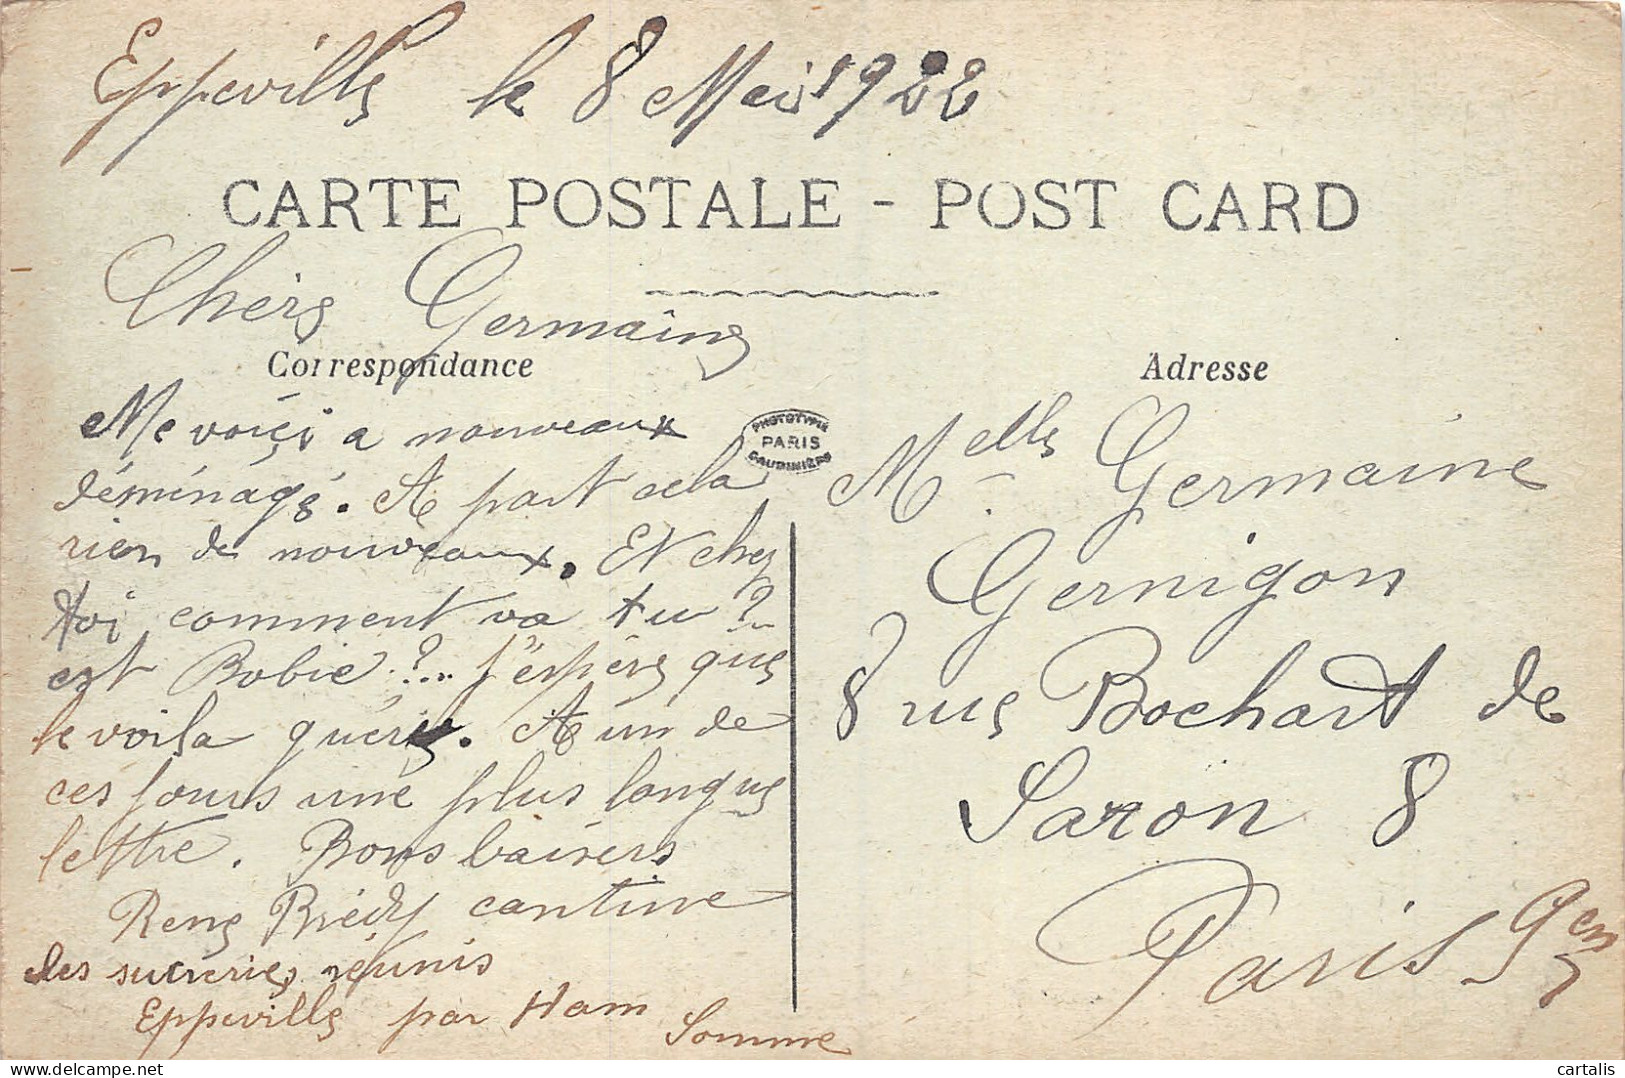 Eppeville le 8 Mai 1922
CARTE POSTALE - POST CARD
Chère Germaine
Correspondance
Me voiçi a nouveaux
déménagé. A part cela
rien de nouveaux. Et chez
toi comment va tu ?
est Bobie ?... J'espère que
le voila guéris. A un de
ces jours une plus longue
lettre. Bons baisers
René Briédy cantine
des sucreries réunis
Eppeville par Ham
Somme
PHOTOTYPIE
PARIS
BAUDINIÈRE
Adresse
Melle Germaine
Gernigon
8 rue Bochart de
Saron 8
Paris 9em
delcampe.net
cartalis